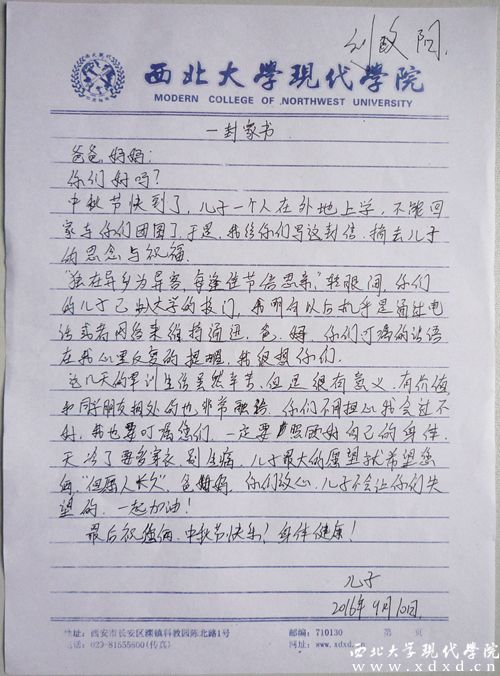 刘政阳
西北大学現代学院
MODERN COLLEGE OF NORTHWEST UNIVERSITY
一封家书
爸爸,妈妈:
你们好吗?
中秋节快到了,儿子一个人在外地上学,不能回
家与你们团圆了,于是,我给你们写这封信,捎去儿子
的思念与祝福。
"独在异乡为异客,每逢佳节倍思亲,"转眼间,你们
的儿子已 大学的校门,我明白以后几乎是通过电
话或者网络来维持通迅,爸,妈,你们叮嘱的话语
在我心里反复的提醒,我很想你们。
这几天的军训生活虽然辛苦,但是很有意义,有价值,
和同学朋友相处的也非常融 ,你们不用担心我会过不
好,我也要叮嘱您们,一定要照顾好自己的身体,
天冷了要多穿衣,别生病,儿子最大的愿望就希望您
俩"但愿人长久",爸,妈,你们放心,儿子不会让你们失
望的,一起加油!
最后祝您俩,中秋节快乐!身体健康!
儿子
2016年9月10日.
地址:西安市长安区滦镇科教园陈北路1号 邮编:710130 第 页
电话:029-81555600(传真) 网址:www.xdxd.
西北大学现代学院
www.xdxd.cn